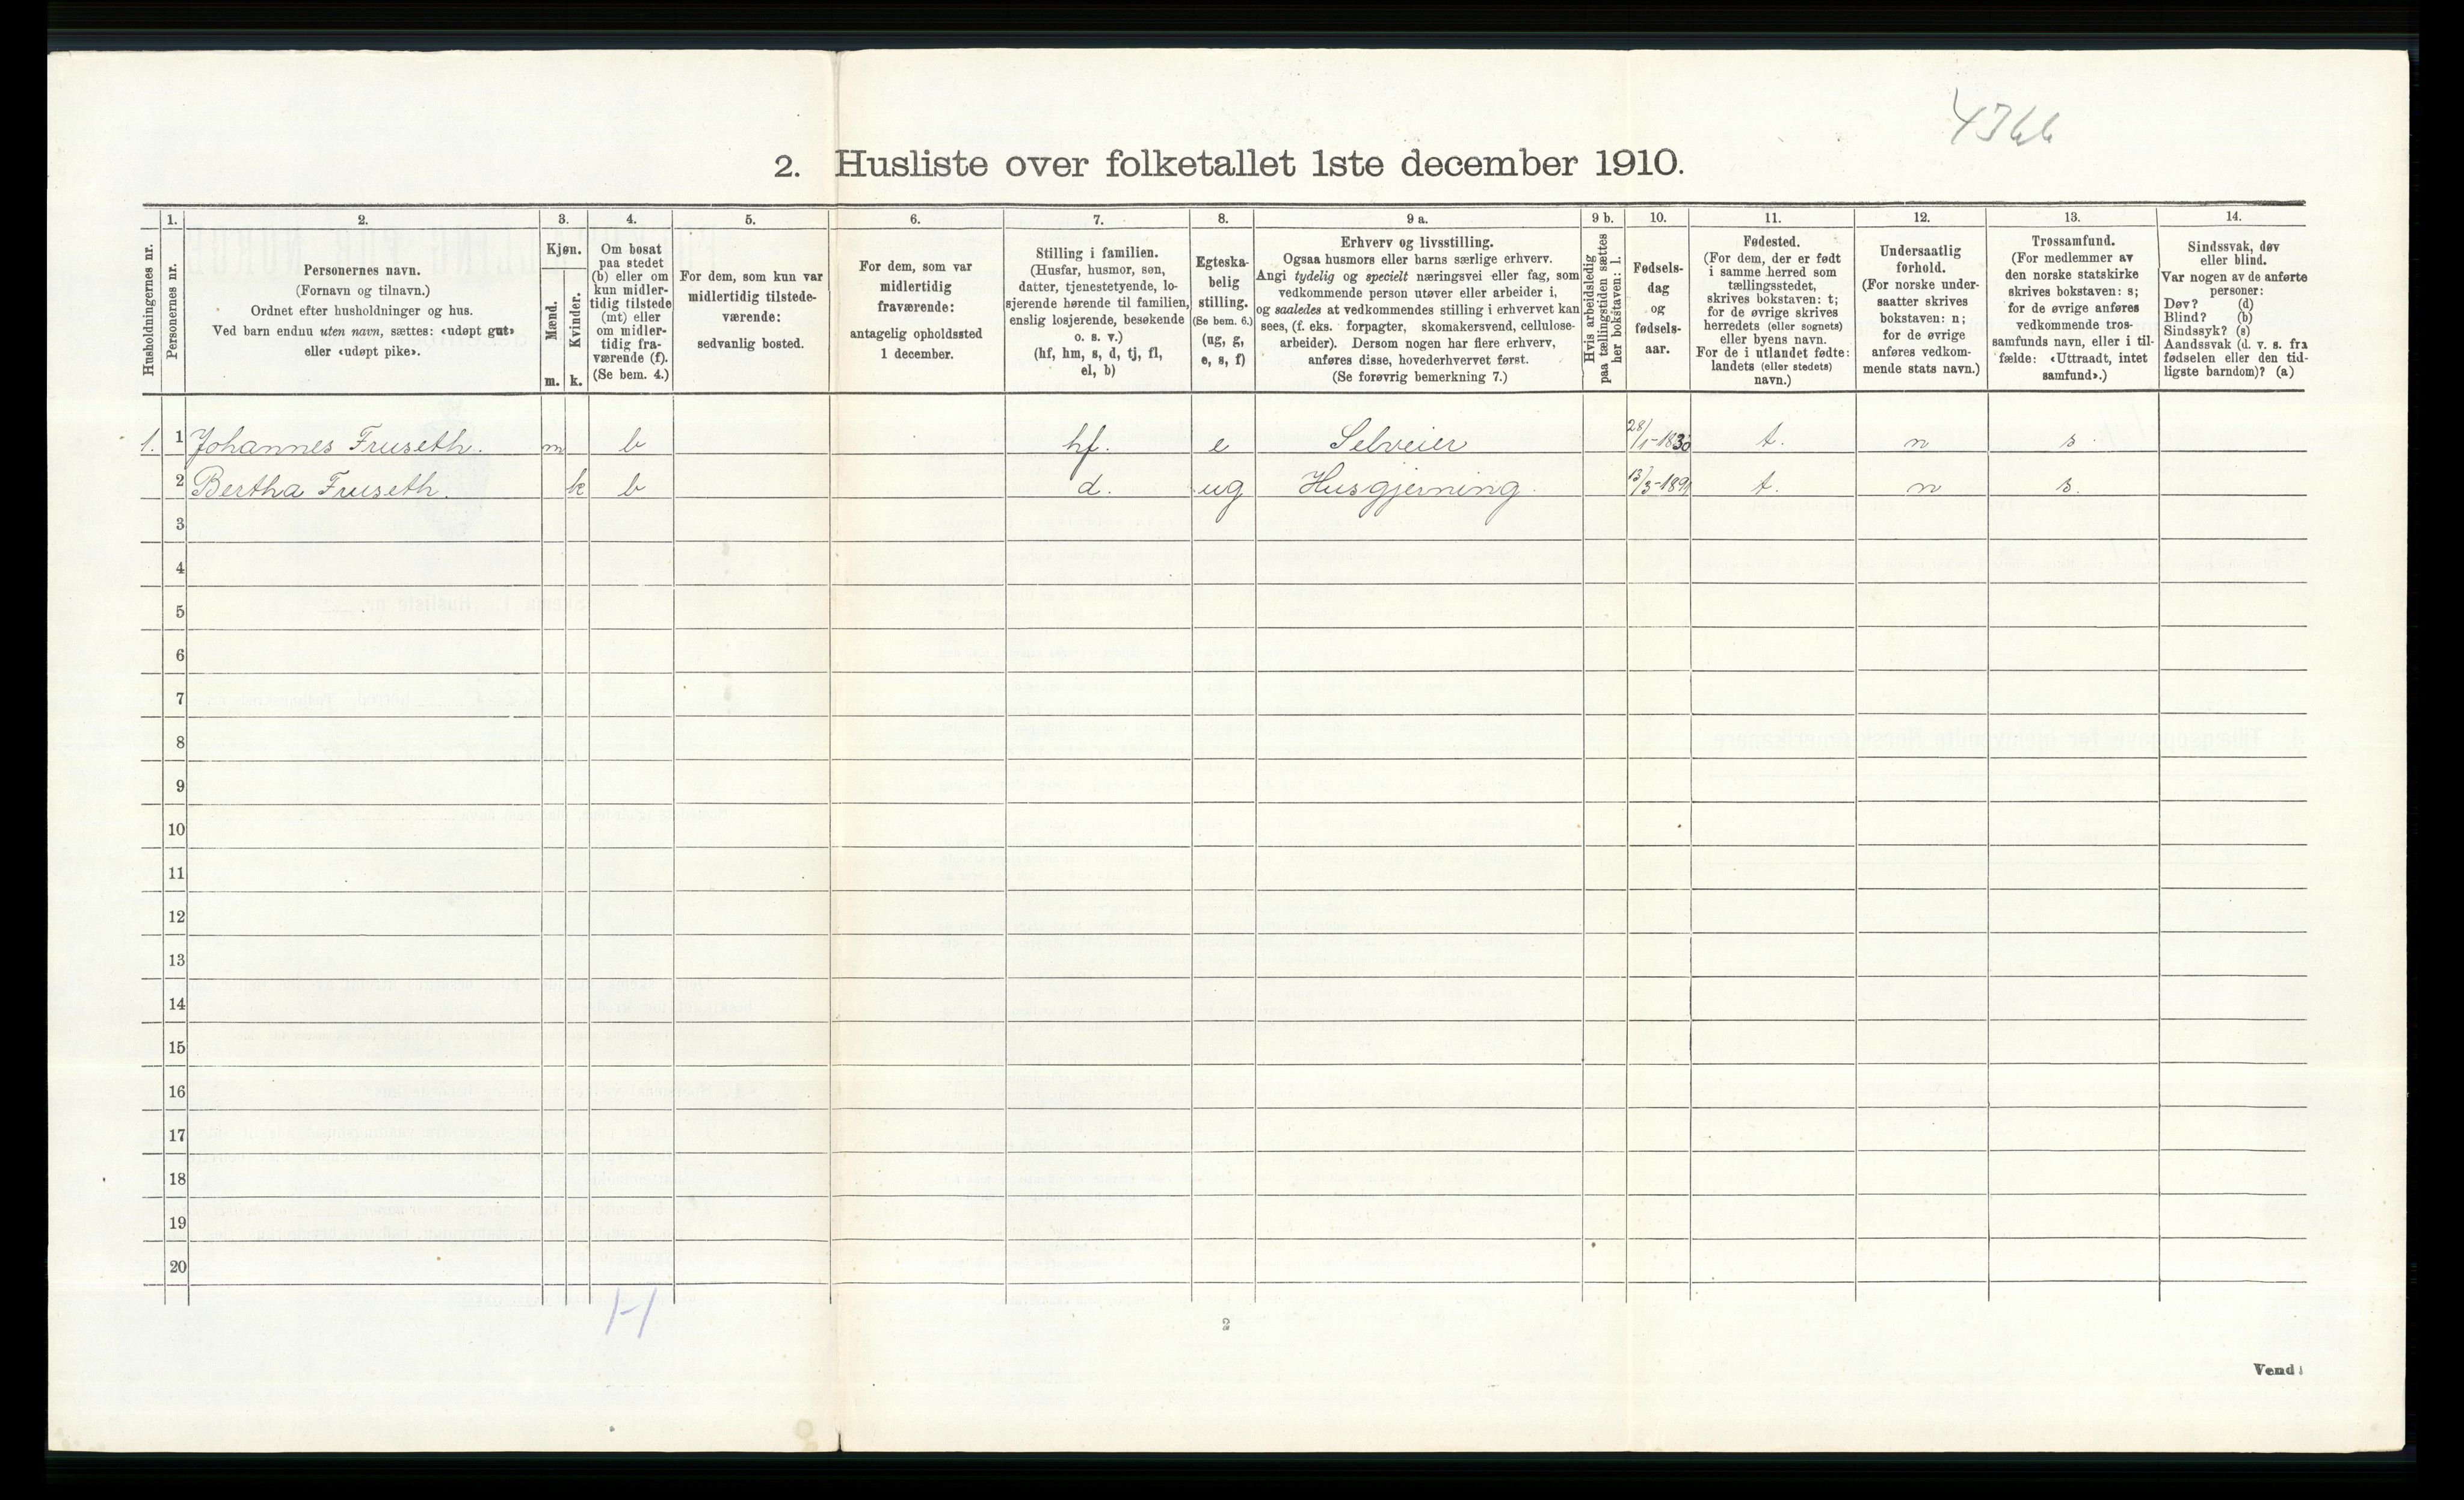 4366
2. Husliste over folketallet 1ste december 1910.
Husholdningernes nr.
1.
Personernes nr.
2.
Personernes navn.
(Fornavn og tilnavn.)
Ordnet efter husholdninger og hus.
Ved barn endnu uten navn, sættes: «udøpt gut»
eller «udøpt pike».
3.
Kjøn.
Mænd.
m.
Kvinder.
k.
4.
Om bosat
paa stedet
(b) eller om
kun midler-
tidig tilstede
(mt) eller
om midler-
tidig fra-
værende (f).
(Se bem. 4.)
5.
For dem, som kun var
midlertidig tilstede-
værende:
sedvanlig bosted.
6.
For dem, som var
midlertidig
fraværende:
antagelig opholdssted
1 december.
7.
Stilling i familien.
(Husfar, husmor, søn,
datter, tjenestetyende, lo-
sjerende hørende til familien,
enslig losjerende, besøkende
o. s. v.)
(hf, hm, s, d, tj, fl,
el, b)
8.
Egteska-
belig
stilling.
(Se bem. 6.)
(ug, g,
e, s, f)
9 a.
Erhverv og livsstilling.
Ogsaa husmors eller barns særlige erhverv.
Angi tydelig og specielt næringsvei eller fag, som
vedkommende person utøver eller arbeider i,
og saaledes at vedkommendes stilling i erhvervet kan
sees, (f. eks. forpagter, skomakersvend, cellulose-
arbeider). Dersom nogen har flere erhverv,
anføres disse, hovederhvervet først.
(Se forøvrig bemerkning 7.)
9 b.
Hvis arbeidsledig
paa tællingstiden sættes
her bokstaven: l.
10.
Fødsels-
dag
og
fødsels-
aar.
11.
Fødested.
(For dem, der er født
i samme herred som
tællingsstedet,
skrives bokstaven: t;
for de øvrige skrives
herredets (eller sognets)
eller byens navn.
For de i utlandet fødte:
landets (eller stedets)
navn.)
12.
Undersaatlig
forhold.
(For norske under-
saatter skrives
bokstaven: n;
for de øvrige
anføres vedkom-
mende stats navn.)
13.
Trossamfund.
(For medlemmer av
den norske statskirke
skrives bokstaven: s;
for de øvrige anføres
vedkommende tros-
samfunds navn, eller i til-
fælde: «Uttraadt, intet
samfund».)
14.
Sindssvak, døv
eller blind.
Var nogen av de anførte
personer:
Døv? (d)
Blind? (b)
Sindssyk? (s)
Aandssvak (d. v. s. fra
fødselen eller den tid-
ligste barndom)? (a)
1. 1 Johannes Fruseth. m b hf. e Selveier 28/1-1830 t. n s.
2 Bertha Fruseth. k b d. ug Husgjerning. 13/3-1891 t. n s.
3
4
5
6
7
8
9
10
11
12
13
14
15
16
17
18
19
20
1-1
2
Vend!